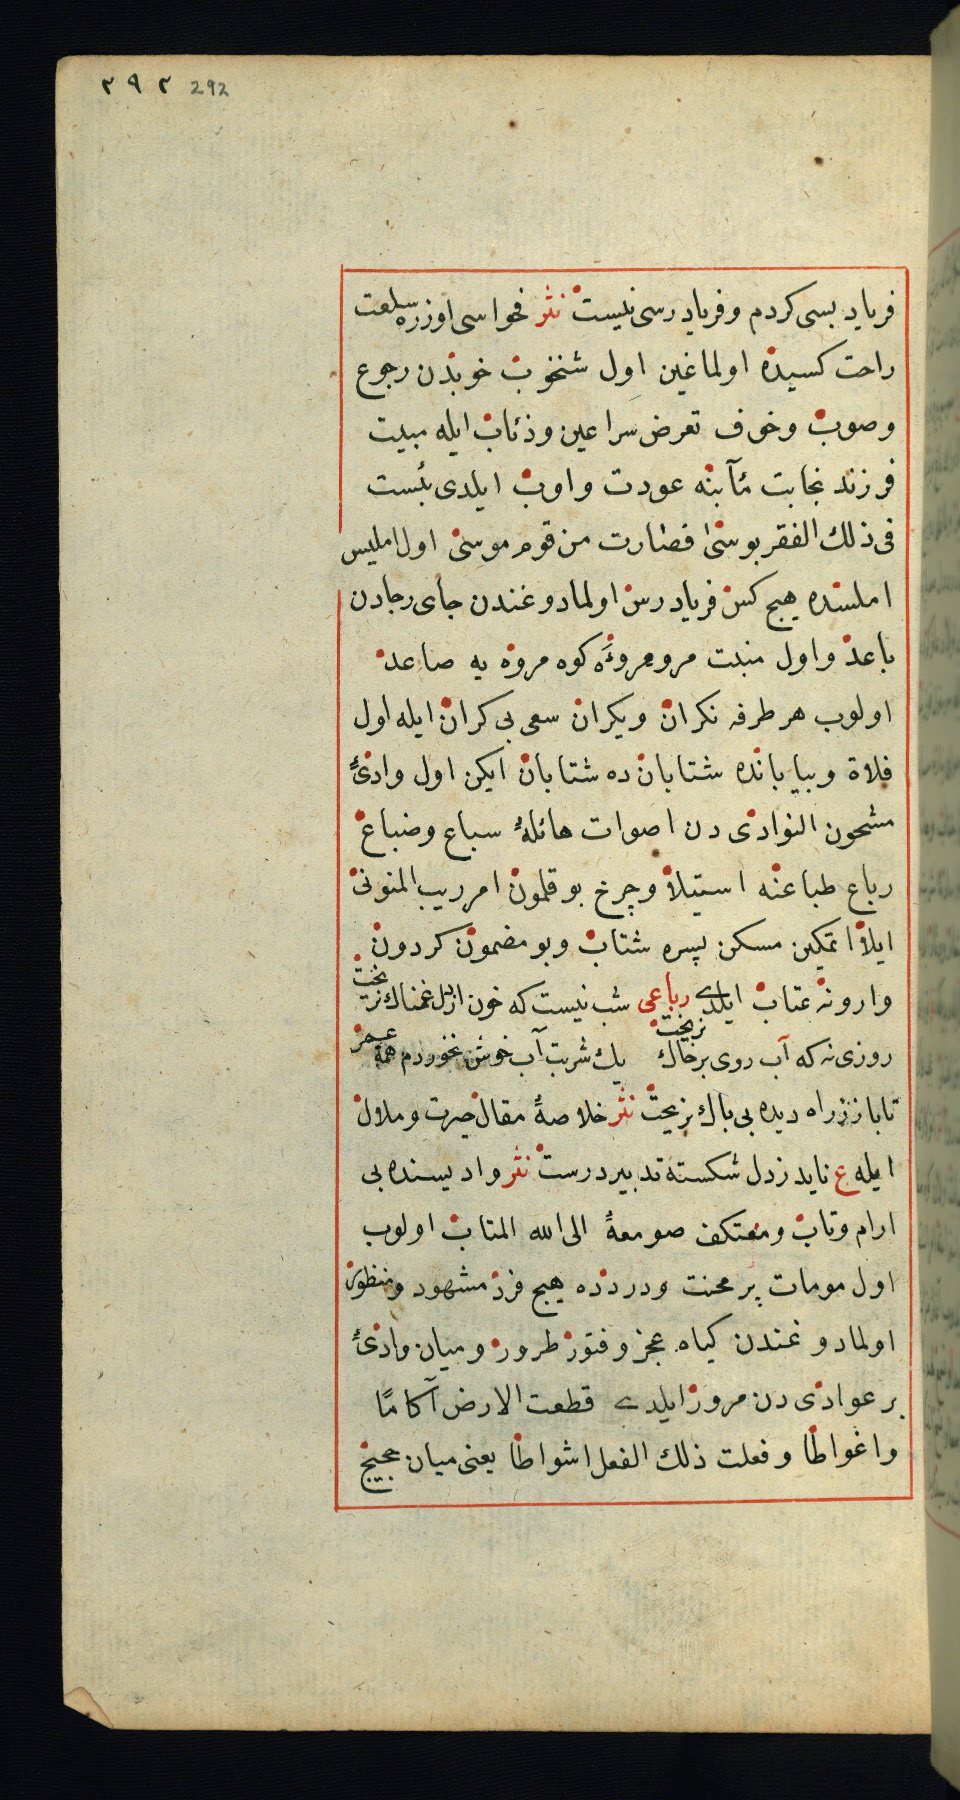 ۲۹۲ 292
فریاد بسی کردم و فریاد رسی نیست نثر فحواسی اوزره سلعت
راحت کسیده اولماغین اول شنخوب خوبدن رجوع
وصوب وخوف تعرض سراعین وذئاب ایله مبیت
فرزند نجابت مآبنه عودت واوب ایلدی بئست
فی ذلك الفقر بوسئ فصارت من قوم موسی اول املیس
املسده هیچ کس فریاد رس اولمادوغندن جای رجادن
باعد واول منبت مرومروه کوه مروه یه صاعد
اولوب هر طرفه نکران ویکران سعی بی کران ایله اول
فلاة وبیاباندە شتابان ده شتابان ایکن اول وادئ
مشحون النوادی دن اصوات هائلهٔ سباع وضباع
رباع طباعنه استیلا وچرخ بوقلمون امر ریب المنونی
ایلا اتمکین مسکن پسره شتاب وبو مضمون کردون
وارونه عتاب ایلدی رباعی شب نیست که خون از دل غمناك نریخت
روزی نه که آب روی بر خاك نریخت یك شربت آب خوش نخوردم همه عمر
تا باز ز راه دیده بی باك نریخت نثر خلاصهٔ مقال حیرت وملال
ایله ع ناید ز دل شکسته تدبیر درست نثر وادیسنده بی
ارام وتاب ومعتکف صومعهٔ الی الله المتاب اولوب
اول مومات پر محنت ودردده هیچ فرد مشهود ومنظوری
اولمادوغندن کیاه عجز وفتور طرور ومیان وادئ
پر عوادی دن مرور ایلدی قطعت الارض آکامًا
واغواطا وفعلت ذلك الفعل اشواطا یعنی میان